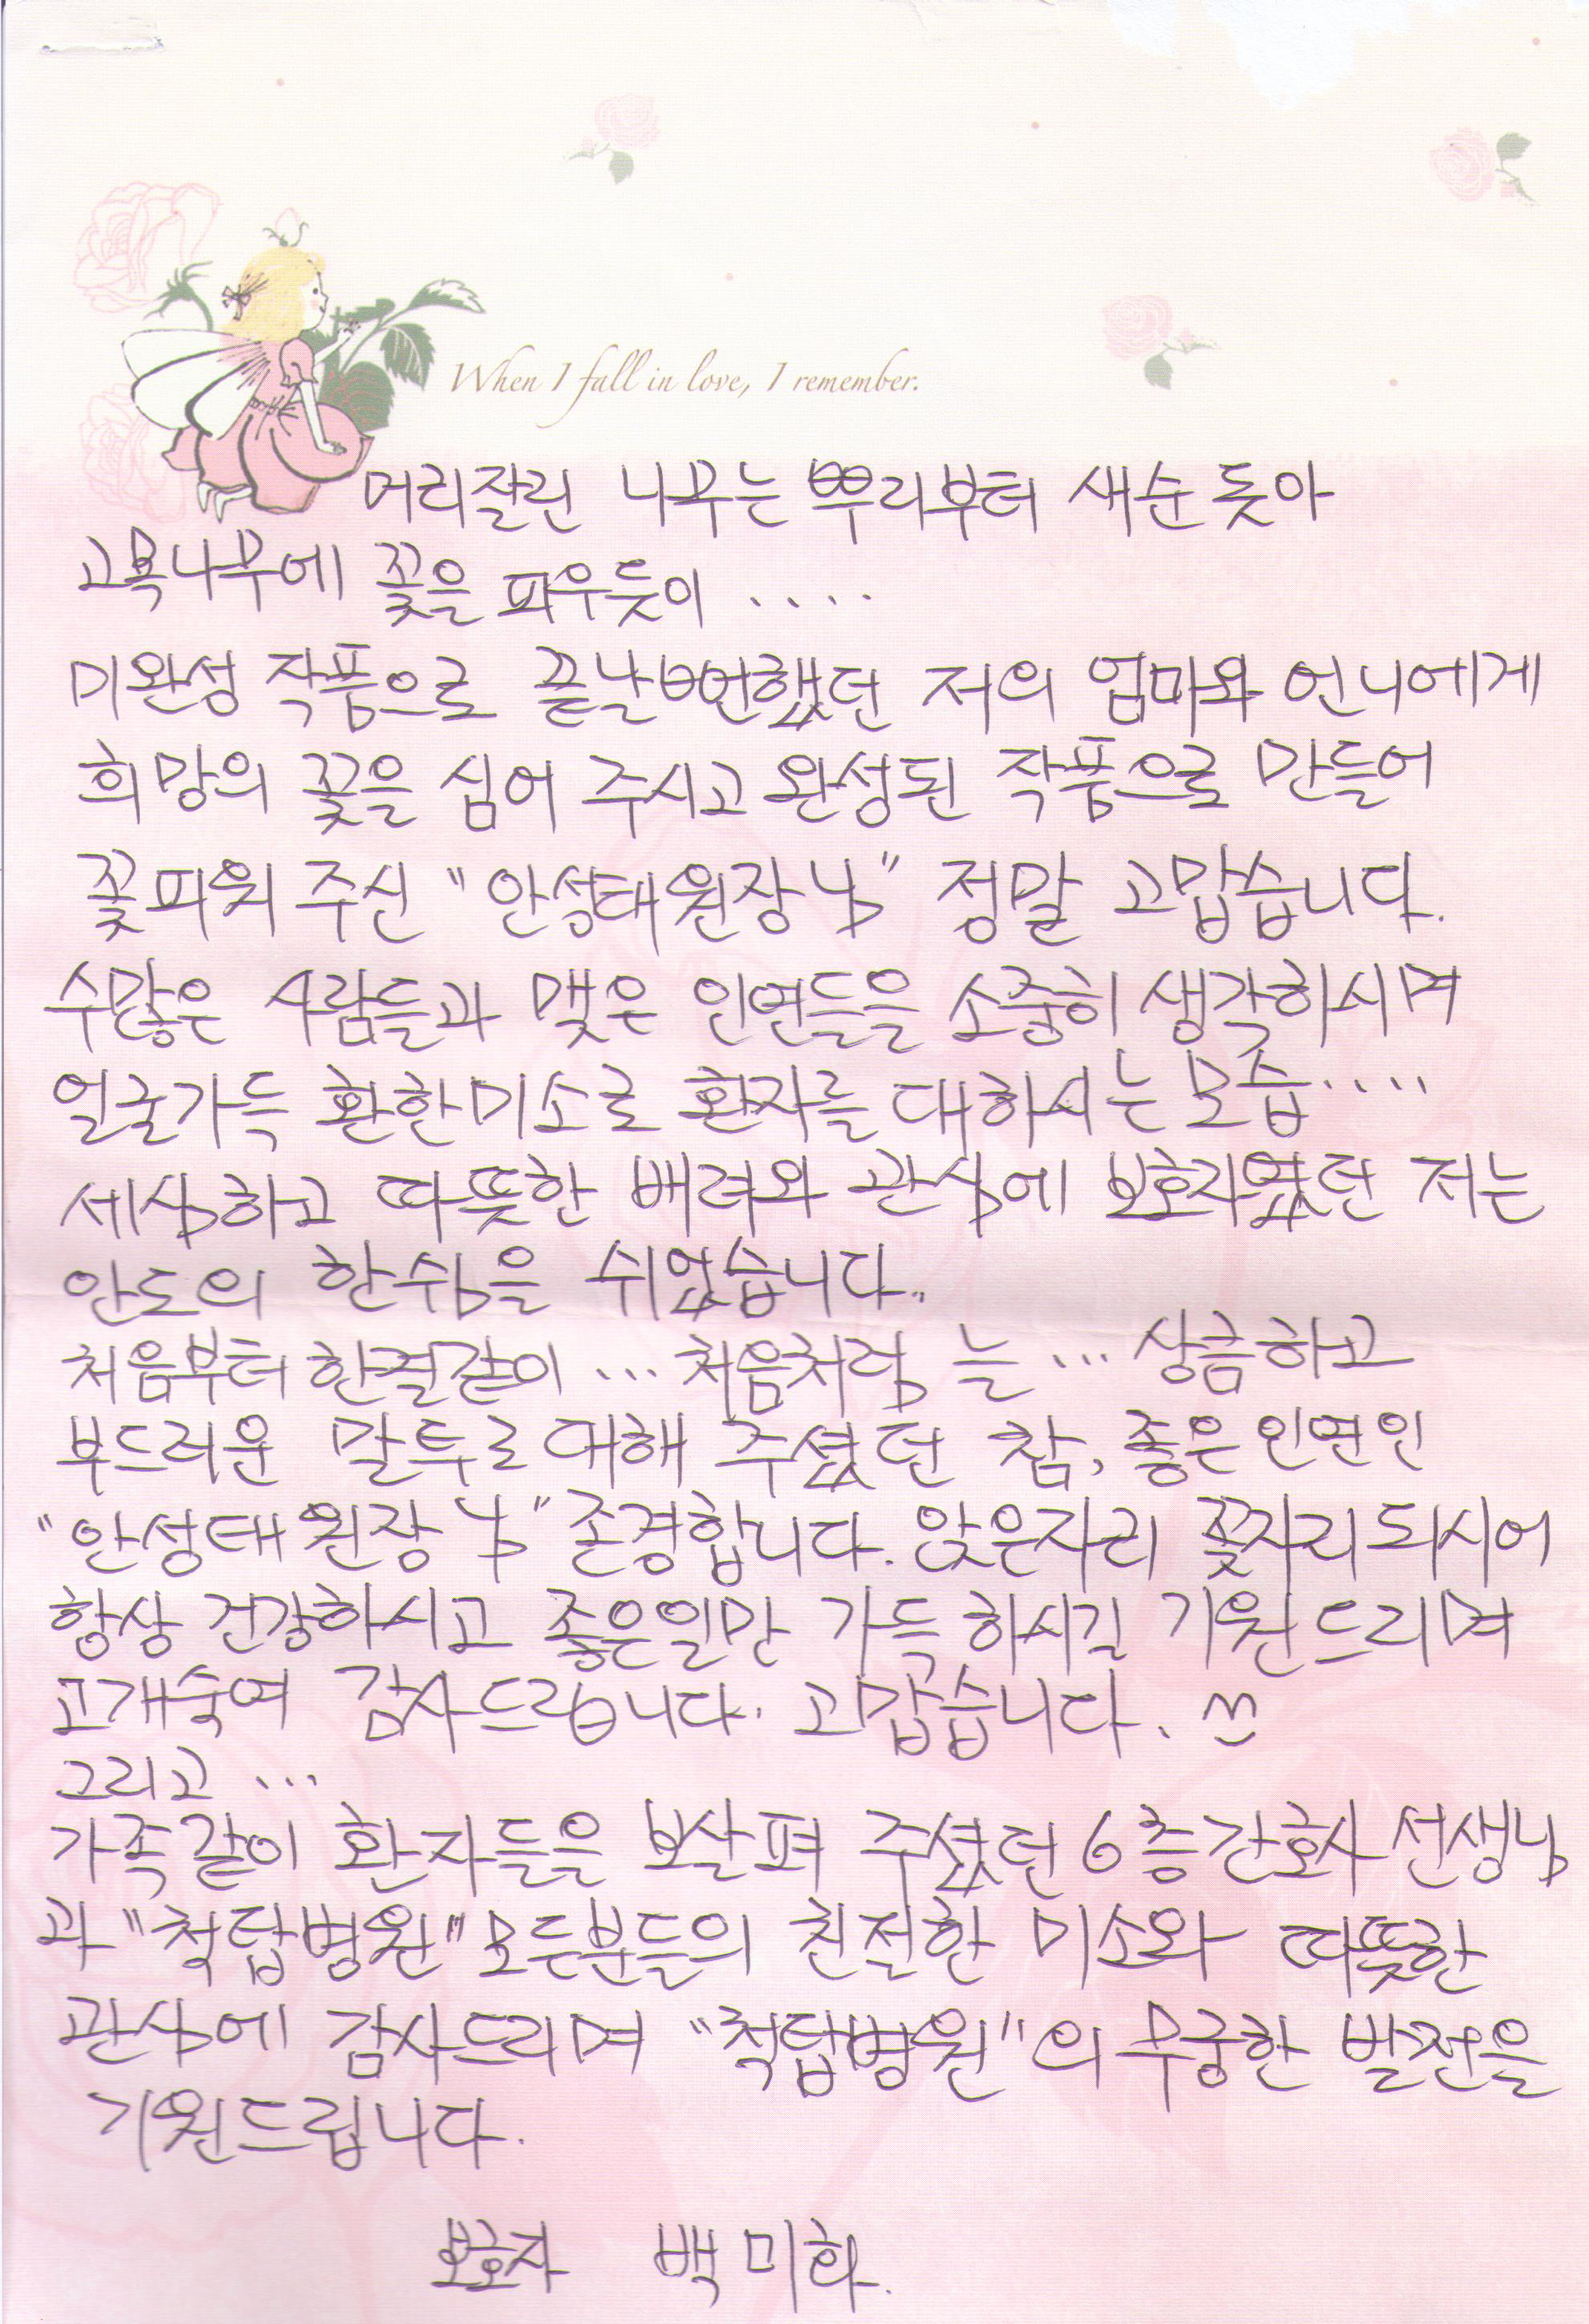 When I fall in love, I remember.
머리잘린 나무는 뿌리부터 새순 돋아
고목나무에 꽃을 피우듯이 ....
미완성 작품으로 끝날뻔했던 저의 엄마와 언니에게
희망의 꽃을 심어 주시고 완성된 작품으로 만들어
꽃피워 주신 "안성태원장님" 정말 고맙습니다.
수많은 사람들과 맺은 인연들을 소중히 생각하시며
얼굴가득 환한미소로 환자를 대하시는 모습....
세심하고 따뜻한 배려와 관심에 보호자였던 저는
안도의 한숨을 쉬었습니다..
처음부터 한결같이 ... 처음처럼 늘 ... 상큼하고
부드러운 말투로 대해 주셨던 참, 좋은 인연인
"안성태 원장님" 존경합니다. 앉은자리 꽃자리되시어
항상 건강하시고 좋은일만 가득 하시길 기원드리며
고개숙여 감사드립니다. 고맙습니다. ^^
그리고 ...
가족같이 환자들을 보살펴 주셨던 6층간호사 선생님
과 "척탑병원" 모든분들의 친절한 미소와 따뜻한
관심에 감사드리며 "척탑병원"의 무궁한 발전을
기원드립니다.
보호자 백미화.